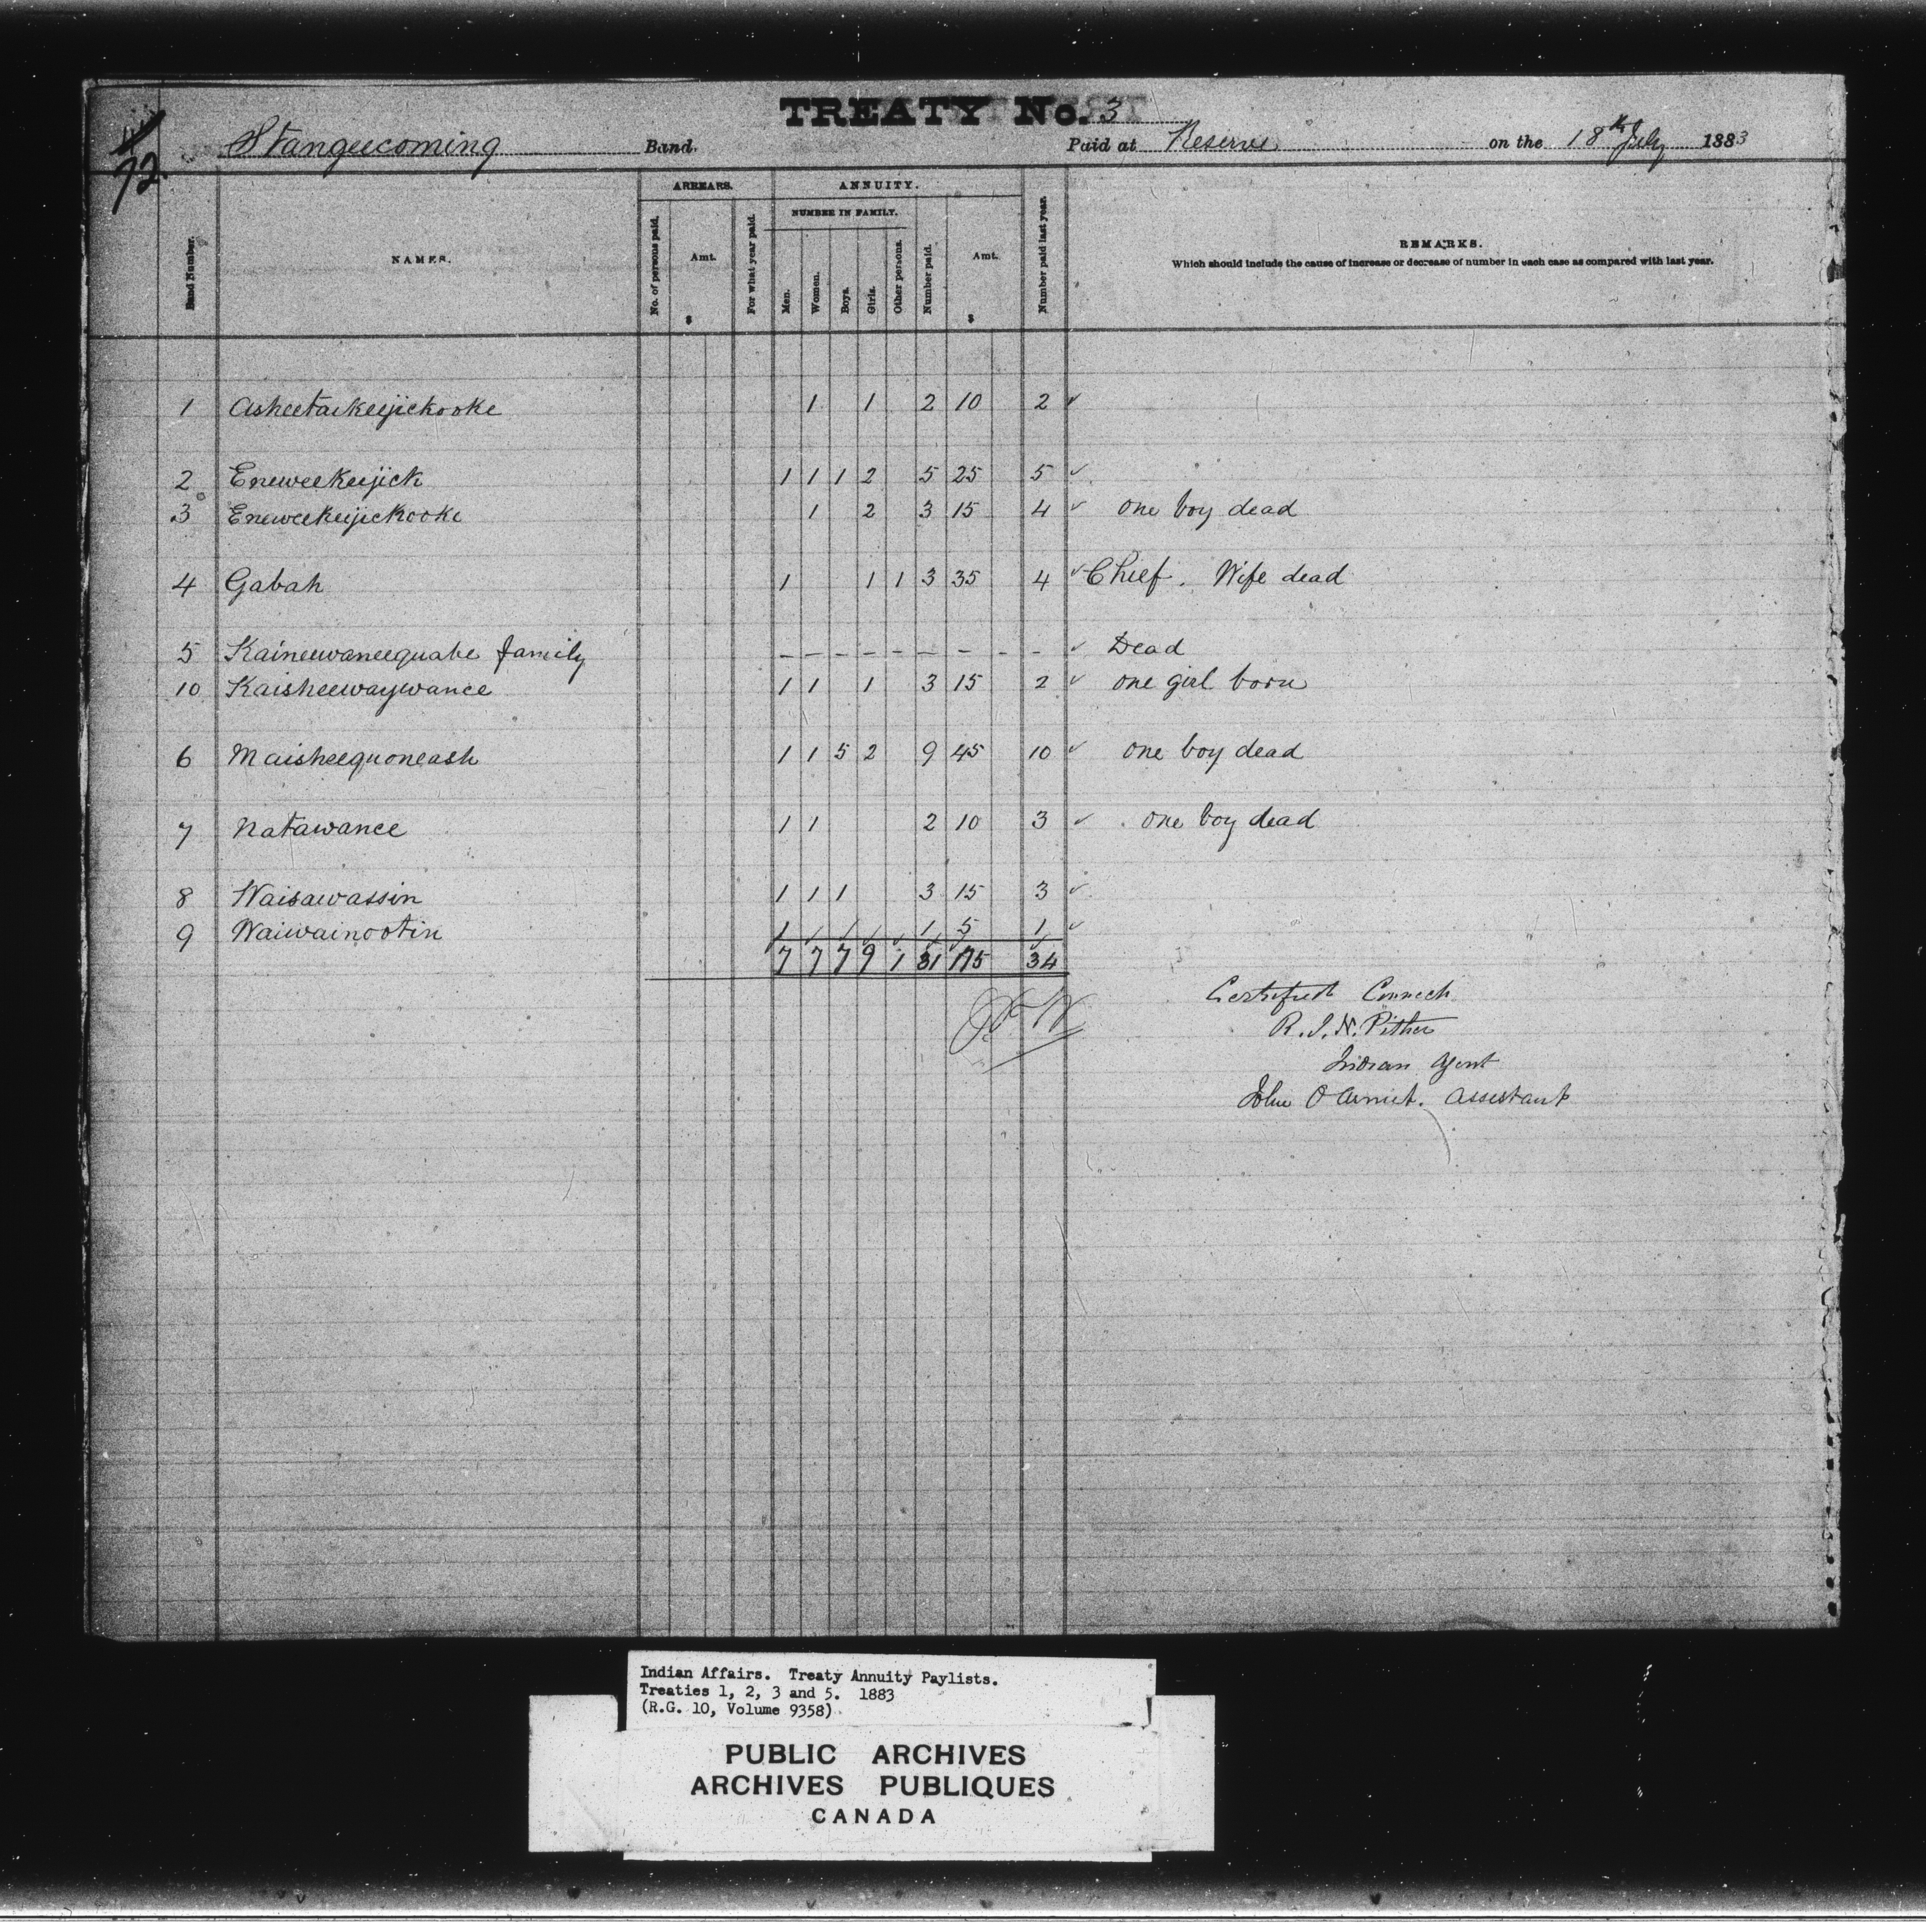 TREATY No. 3
72.
Stangeecoming Band. Paid at Reserve on the 18th July 1883
Band Number.
NAMES.
ARREARS.
No. of persons paid.
Amt.
$
For what year paid.
ANNUITY.
NUMBER IN FAMILY.
Men.
Women.
Boys.
Girls.
Other persons.
Number paid.
Amt.
$
Number paid last year.
REMARKS.
Which should include the cause of increase or decrease of number in each case as compared with last year.
1 Asheetaikeejickooke 1 1 2 10 2 ✓
2 Eneweekeejick 1 1 1 2 5 25 5 ✓
3 Eneweekeejickooke 1 2 3 15 4 ✓ one boy dead
4 Gabah 1 1 1 3 35 4 ✓ Chief. Wife dead
5 Kaineewaneequabe family - - - - - - - - - ✓ Dead
10 Kaisheewaywance 1 1 1 3 15 2 ✓ one girl born
6 Maisheequoneash 1 1 5 2 9 45 10 ✓ one boy dead
7 Natawance 1 1 2 10 3 ✓ one boy dead
8 Waisawassin 1 1 1 3 15 3 ✓
9 Waiwainootin 1 1 5 1 ✓
7 7 7 9 1 31 175 34
Certified Correct
R. J. N. Pither
Indian Agent
John Assistant
Indian Affairs. Treaty Annuity Paylists.
Treaties 1, 2, 3 and 5. 1883
(R.G. 10, Volume 9358)
PUBLIC ARCHIVES
ARCHIVES PUBLIQUES
CANADA